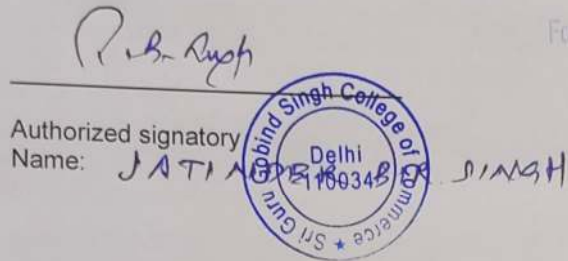 Fo
Authorized signatory
Name: JATINDER BIR SINGH
Sri Guru Gobind Singh College of Commerce ★
Delhi
110034